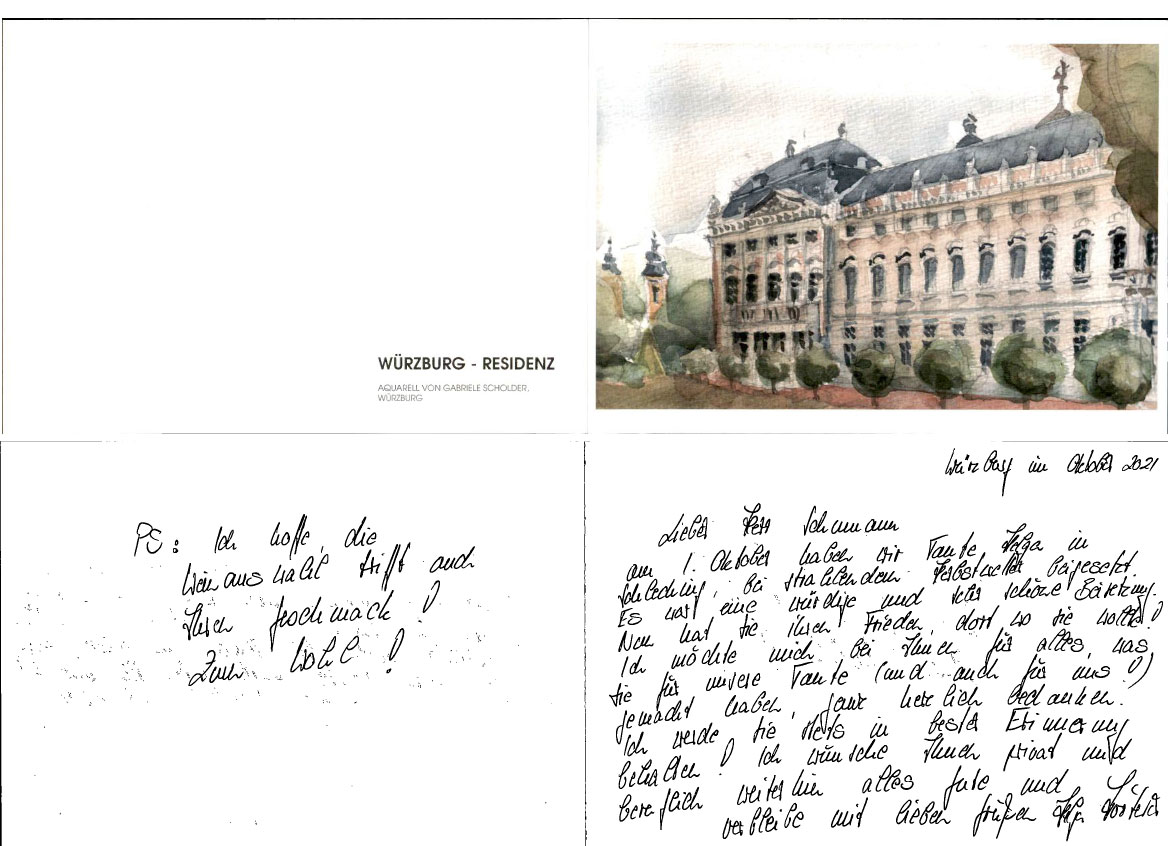 WÜRZBURG - RESIDENZ
AQUARELL VON GABRIELE SCHOLDER,
WÜRZBURG
PS: Ich hoffe, die
Weinauswahl trifft auch
Ihren Geschmack!
Zum Wohl!
Würzburg im Oktober 2021
Lieber Herr Schumann
am 1. Oktober haben wir Tante Helga in
Schleching, bei strahlendem Herbstwetter beigesetzt.
Es war eine würdige und sehr schöne Beisetzung.
Nun hat sie ihren Frieden, dort wo sie wollte!
Ich möchte mich bei Ihnen für alles, was
Sie für unsere Tante (und auch für uns!)
gemacht haben, ganz herzlich bedanken.
Ich werde Sie stets in bester Erinnerung
behalten! Ich wünsche Ihnen privat und
beruflich weiterhin alles Gute und
verbleibe mit lieben Grüßen Helga